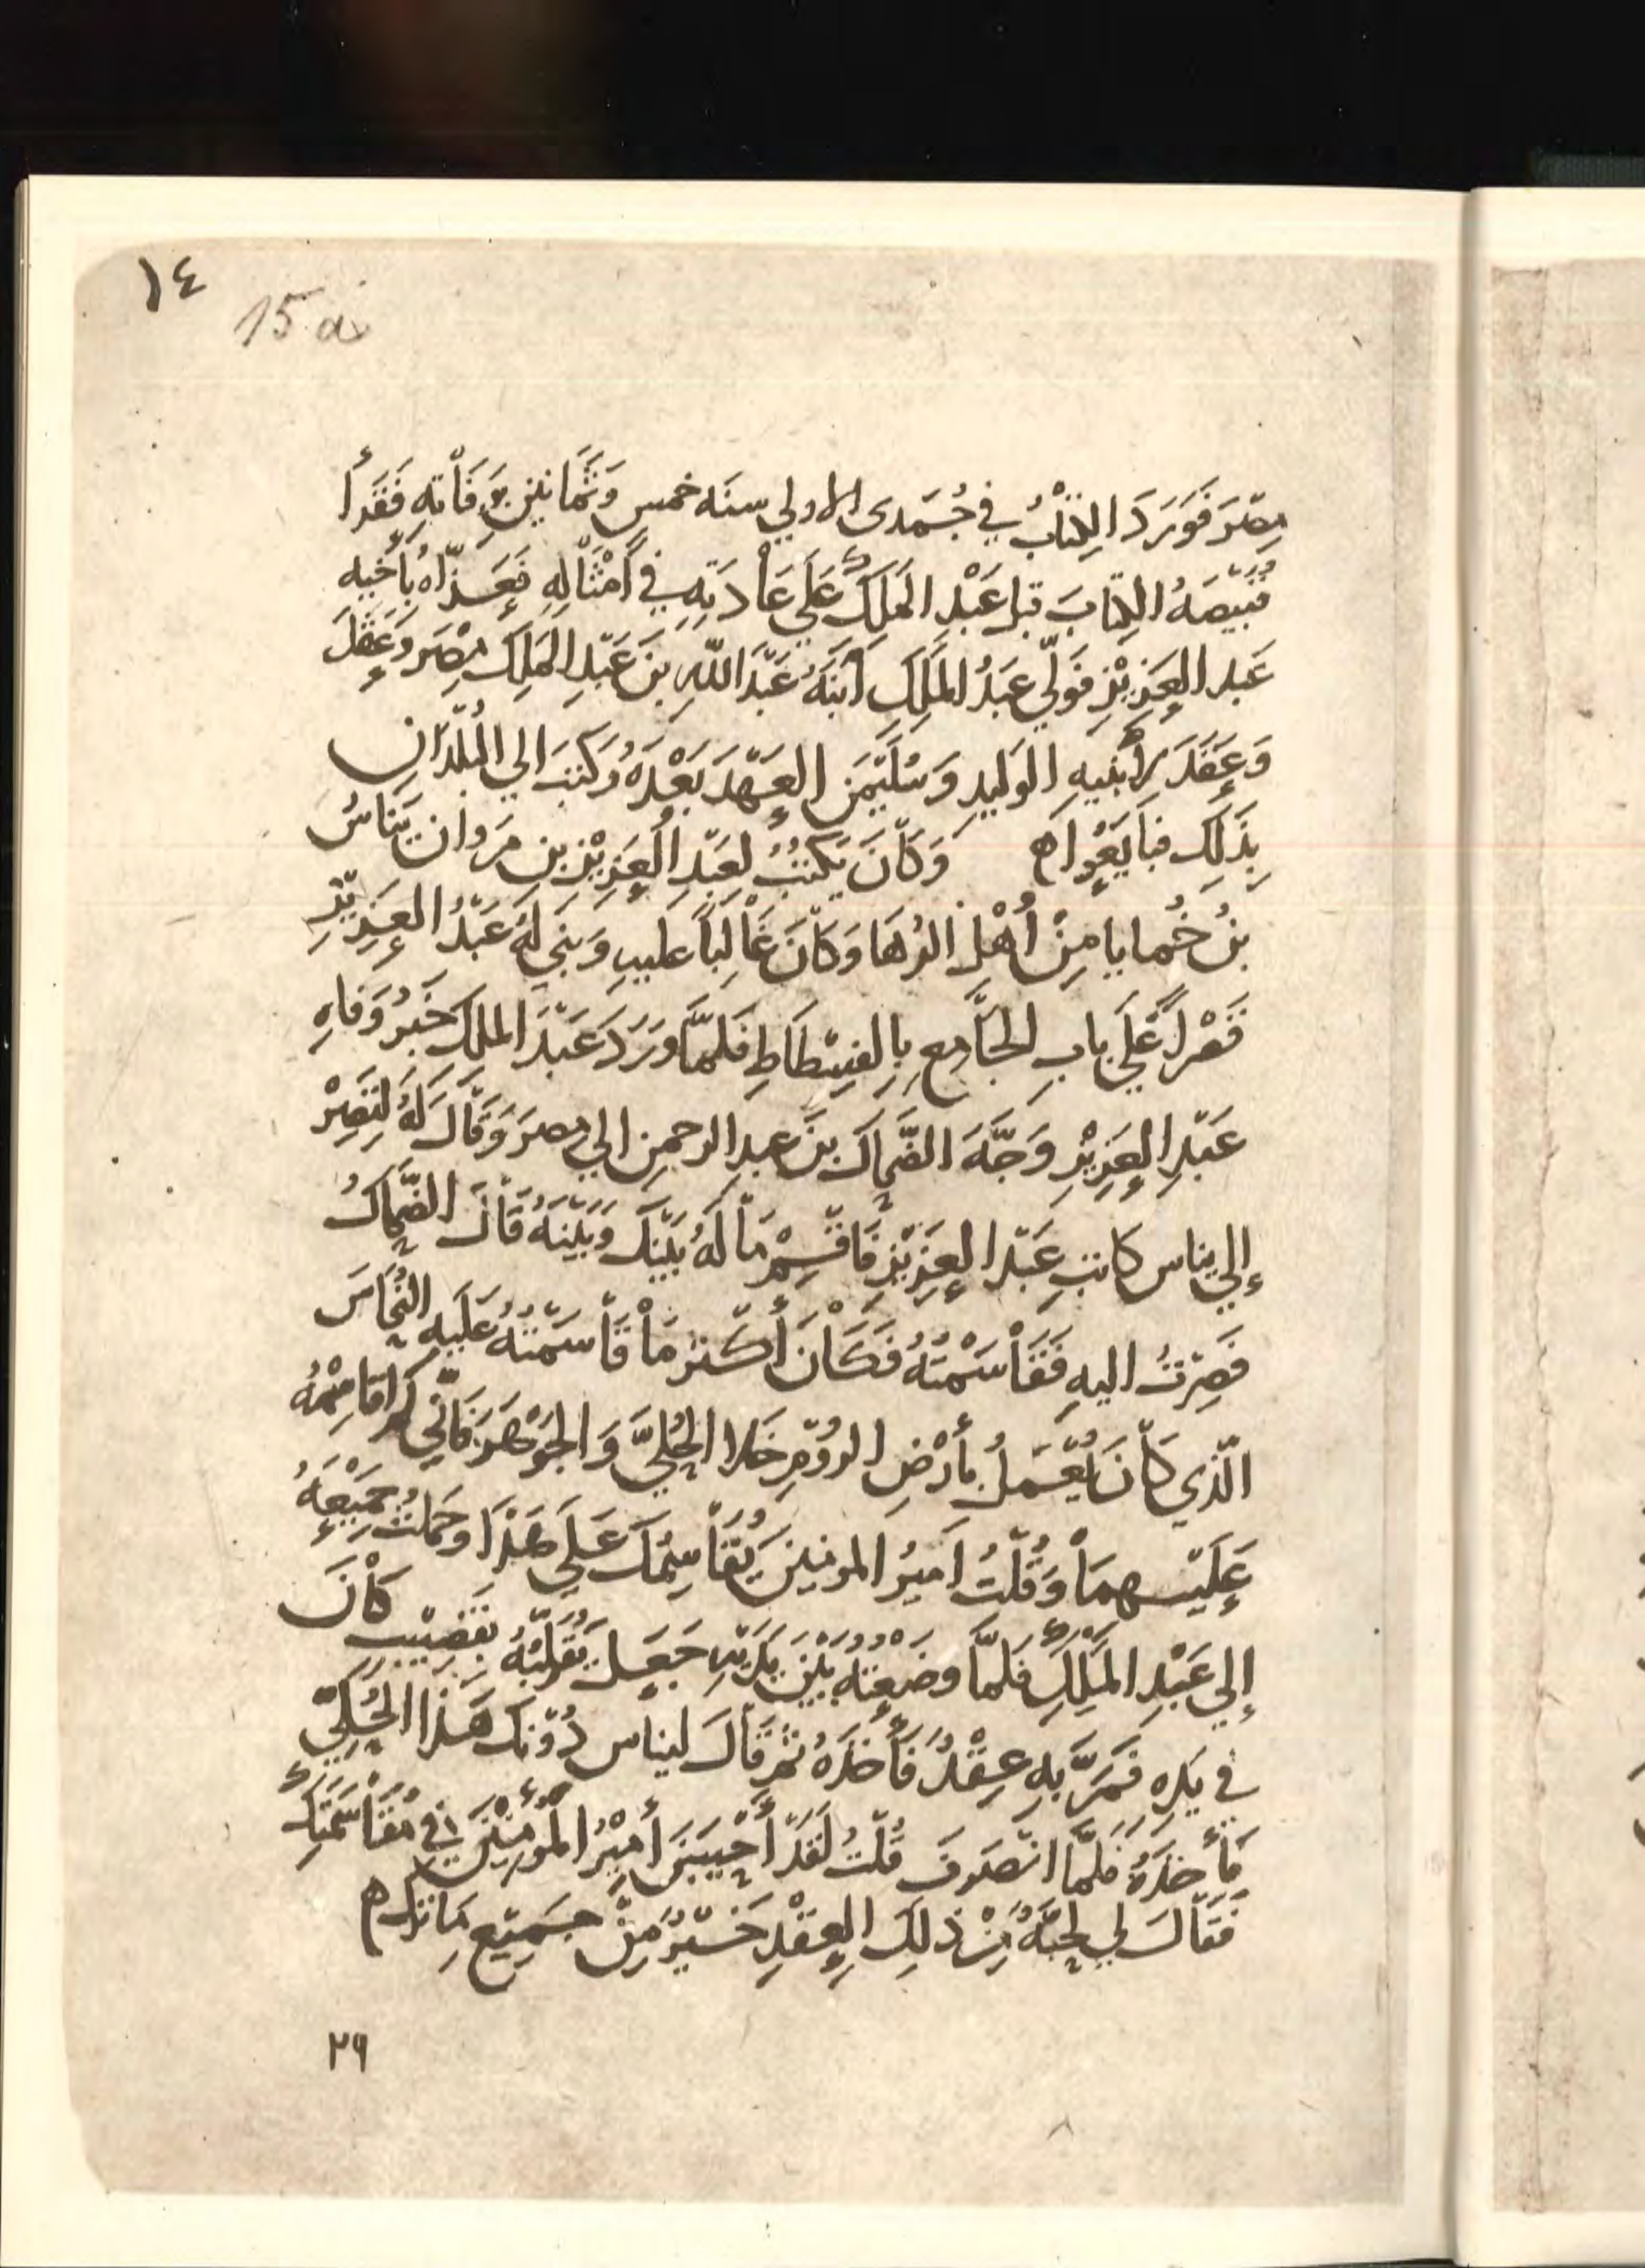 ١٤
15 a
مِصْرَ فَوَرَدَ الكِتَابُ في جُمَدى الاولي سنَه خمس وَثَمَانين بِوَفَاتِهِ فَقَرَأَ
قَبِيصَهُ الكِتَابَ قبل عَبْدِ المَلِكَ عَلَي عَادَتِهِ في أَمْثَالِهِ فَعَزَّاهُ بِأَخِيه
عَبد العَزِيْزِ فَوَلّي عَبدُ المَلِكَ ابْنَهُ عَبْدَ اللّهِ بنَ عَبْدِ المَلِكَ مِصْرَ وَعَقَدَ
وَعَقَدَ لِأبْنَيهِ الوَليدِ وَسُلَيْمَنَ العَهْدَ بَعْدَهُ وَكَتبَ الي البُلْدَانِ
بِذَلِكَ فبَايَعُوا ه وَكَانَ يَكتُبُ لِعَبْدِ العَزِيْزِ بنِ مَروان يَنَاسُ
بنُ خُمايا مِنْ أَهْلِ الرُّهَا وَكَانَ غَالِباً عليهِ وَبَنَي لَهُ عَبْدُ العَزِيْزِ
قَصْراً عَلَي بابِ الجَامعِ بِالفِسْطَاطِ فَلَمَّا وَرَدَ عَبْدَ الملِكَ خَبَرُ وَفَاهِ
عَبْدِ العَزِيْزِ وَجَّهَ الضَّحَاكَ بنَ عبدِ الرحمنِ الي مصرَ وَقَالَ لَهُ لِتَصِرْ
إلي يناس كاتبِ عَبْدِ العَزِيْزِ فَاقْسِمْ مَا لَهُ بَيْنَكَ وَبَيْنَهُ قَالَ الضَّحَاكُ
فَصِرْتُ اليهِ فَقَاسَمْتُهُ فَكَانَ أَكثر مَا قَاسَمْتُهُ عَلَيهِ النُّحَاسَ
الّذي كَانَ يُعْمَلُ بأَرْضِ الرُّوْمِ خَلا الحُلِيَّ وَالجَوْهَرَ فَانّي لَم اقَاسِمْهُ
عَلَيْهِمَا وَقُلْتُ اَميرُ المومنينَ يُقَاسِمُكَ عَلَي هَذَا وحَملتُ جَمِيْعَهُ
إلي عَبْدِ المَلِكِ فَلَمَّا وضَعتُهُ بَيْنَ يَدَيْهِ جَعَلَ يُقَلِّبُهُ بِقَضِيْبٍ كَانَ
في يَدِهِ فَمَرَّ بِهِ عِقْدٌ فَأَخَذَهُ ثمَّ قَالَ ليناس دُوْنَكَ هَذَا الحُلِيَّ
فَأَخَذَهُ فَلَمَّا انْصَرَفَ قُلْتُ لَقَدْ أَحْيَيْتَنَ أَمِيْرُ المُؤْمِنِيْنَ في مُقَاسَمَتِكَ
فَقَالَ لي لحَبَّهٌ مِنْ ذلِكَ العِقْدِ خَيْرٌ مِنْ جَمِيْعِ مَا تَرَكَ ه
٢٩